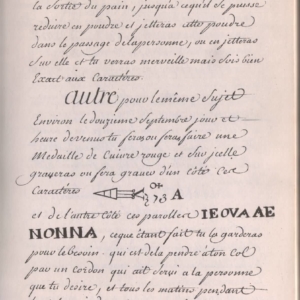 la sortie du pain, jusqu'a cequ'il se puisse
reduire en poudre et jetteras cette poudre
dans le passage delapersonne, ou en jetteras
sur elle et tu verras merveille mais sois bien
Exact aux Caracteres.
autre pour le même Sujet
Environ le douzieme Septembre jour et
heure de venus tu feras ou feras faire une
Medaille de Cuivre rouge et sur jcelle
graveras ou fera graver d'un côté ces
Caracteres A
et de l'autre côté ces parolles IEOVA AE
NONNA, ce que étant fait tu la garderas
pour le besoin. qui est de la pendre à ton Col
par un cordon qui ait servi a la personne
que tu desire, et tous les matins pendant